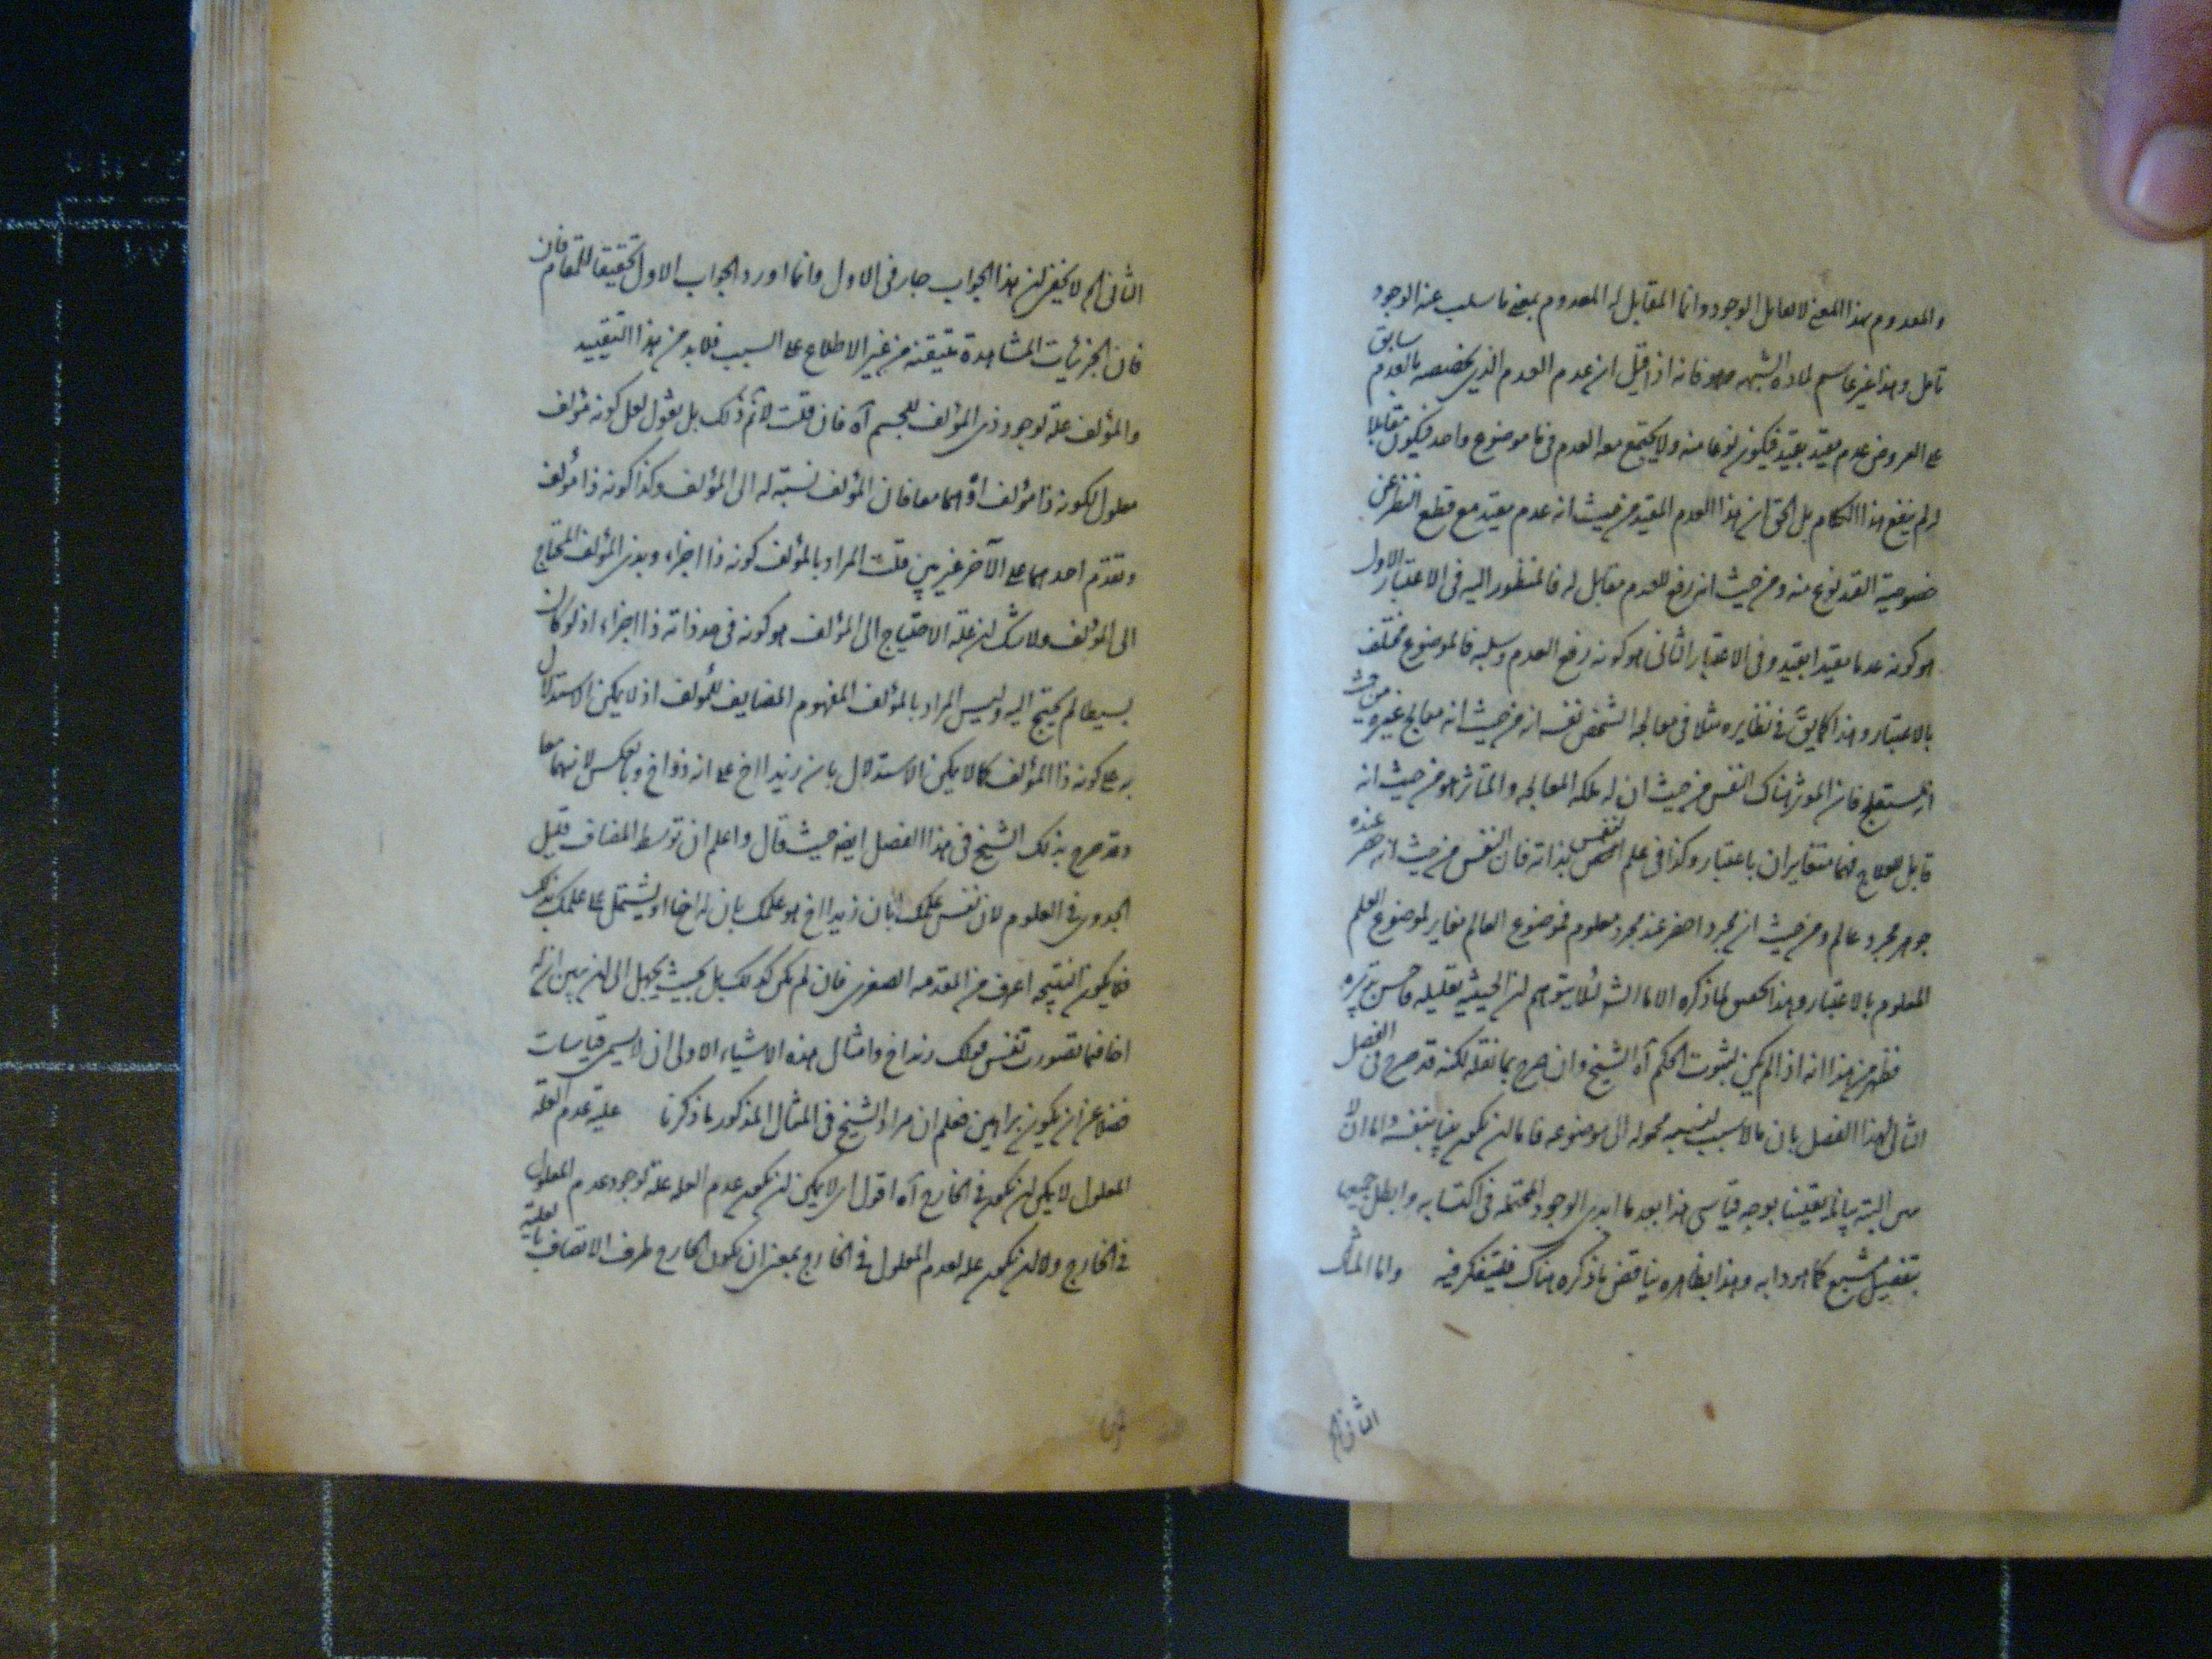 والمعدوم بهذا المعنى لا يقابل الوجود وانما المقابل له المعدوم بمعنى ما سلب عنه الوجود
تأمل وهذا غير حاسم لمادة الشبهه فانه اذا قيل ان عدم العدم الذى بالعدم سابق
على العروض عدم مقيد بقيد فيكون نوعا منه ولا يجتمع معه العدم فى موضوع واحد فيكون مقابلا
له لم ينفع هذا الكلام بل الحق ان هذا العدم المقيد من حيث انه عدم مقيد مع قطع النظر عن
خصوصية القيد نوع منه ومن حيث انه رفع للعدم مقابل له فالمنظور اليه فى الاعتبار الاول
هو كونه عدما مقيدا بقيد وفى الاعتبار الثانى هو كونه رفع العدم وسلبه فالموضوع مختلف
بالاعتبار وهذا كما يق فى نظايره مثلا فى معالجه الشخص نفسه انه من حيث انه معالج غيره من حيث
انه مستعلج فان الموثر هناك النفس من حيث ان له ملكه المعالجه والمتاثر هو من حيث انه
قابل للعلاج فهما متغايران باعتبار وكذا فى علم النفس بذاته فان النفس من حيث انه حضر عنده
جوهر مجرد عالم ومن حيث انه مجرد احضر عند مجرد معلوم فموضوع العالم مغاير لموضوع العلم
المعلوم بالاعتبار وهذا لما ذكره الامام لئلا يتوهم ان الحيثيه تعليليه فاحسن تدبره
فظهر من هذا انه اذا لم يكن لثبوت الحكم آه الشيخ وان صرح بما نقله لكنه قد صرح فى الفصل
الثالى لهذا الفصل بان ما لا سبب لنسبه محموله الى موضوعه فاما ان يكون بينا بنفسه واما ان لا
يبين البتة بيانا يقينيا بوجه قياسى هذا بعدما ابدى الوجوه المحتمله فى اكتسابه وابطل جميعها
بتفصيل مشبع كما هو دابه وهذا بظاهره يناقض ما ذكره هناك فليتفكر فيه واما المثال
الثانى الخ
الثانى الخ لا يخفى ان هذا الجواب جار فى الاول وانما اورد الجواب الاول تحقيقا للمقام فان
فان الجزئيات المشاهدة متيقنه من غير الاطلاع على السبب فلا بد من هذا التقييد
والمؤلف علة لوجود ذى المؤلف للجسم آه فان قلت لا نم ذلك بل نقول لعل كونه مؤلف
معلول لكونه ذا مؤلف او هما معا فان المؤلف نسبته له الى المؤلف وكذا كونه ذا مؤلف
وتقدم احدهما على الآخر غير بين قلت المراد بالمؤلف كونه ذا اجزاء وبذى المؤلف المحتاج
الى المؤلف ولا شك ان علة الاحتياج الى المؤلف هو كونه فى حد ذاته ذا اجزاء اذ لو كان
بسيطا لم يحتج اليه وليس المراد بالمؤلف المفهوم المضايف للمؤلف اذ لا يمكن الاستدلال
به على كونه ذا المؤلف كما لا يمكن الاستدلال بان زيدا اخ على انه ذو اخ وبالعكس لانهما معا
وقد صرح بذلك الشيخ فى هذا الفصل ايضا حيث قال واعلم ان توسط المضاف قليل
الجدوى فى العلوم لان نفس علمك بان زيدا اخ هو علمك بان له اخا او يشتمل على علمك بذلك
فما يكون النتيجه اعرف من المقدمه الصغرى فان لم يكن كذلك بل بحيث يجهل الى ان يبين ان له
اخا فما تصورت نفس قولك زيد اخ وامثال هذه الاشياء الاولى ان لا يسمى قياسات
فضلا عن ان يكون براهين فعلم ان مراد الشيخ فى المثال المذكور ما ذكرنا علية عدم العلة
المعلول لا يمكن ان يكون فى الخارج آه اقول اى لا يمكن ان يكون عدم العله علة لوجود عدم المعلول
فى الخارج ولا ان يكون علة لعدم المعلول فى الخارج بمعنى ان يكون الخارج ظرف الاتصاف بالعلية